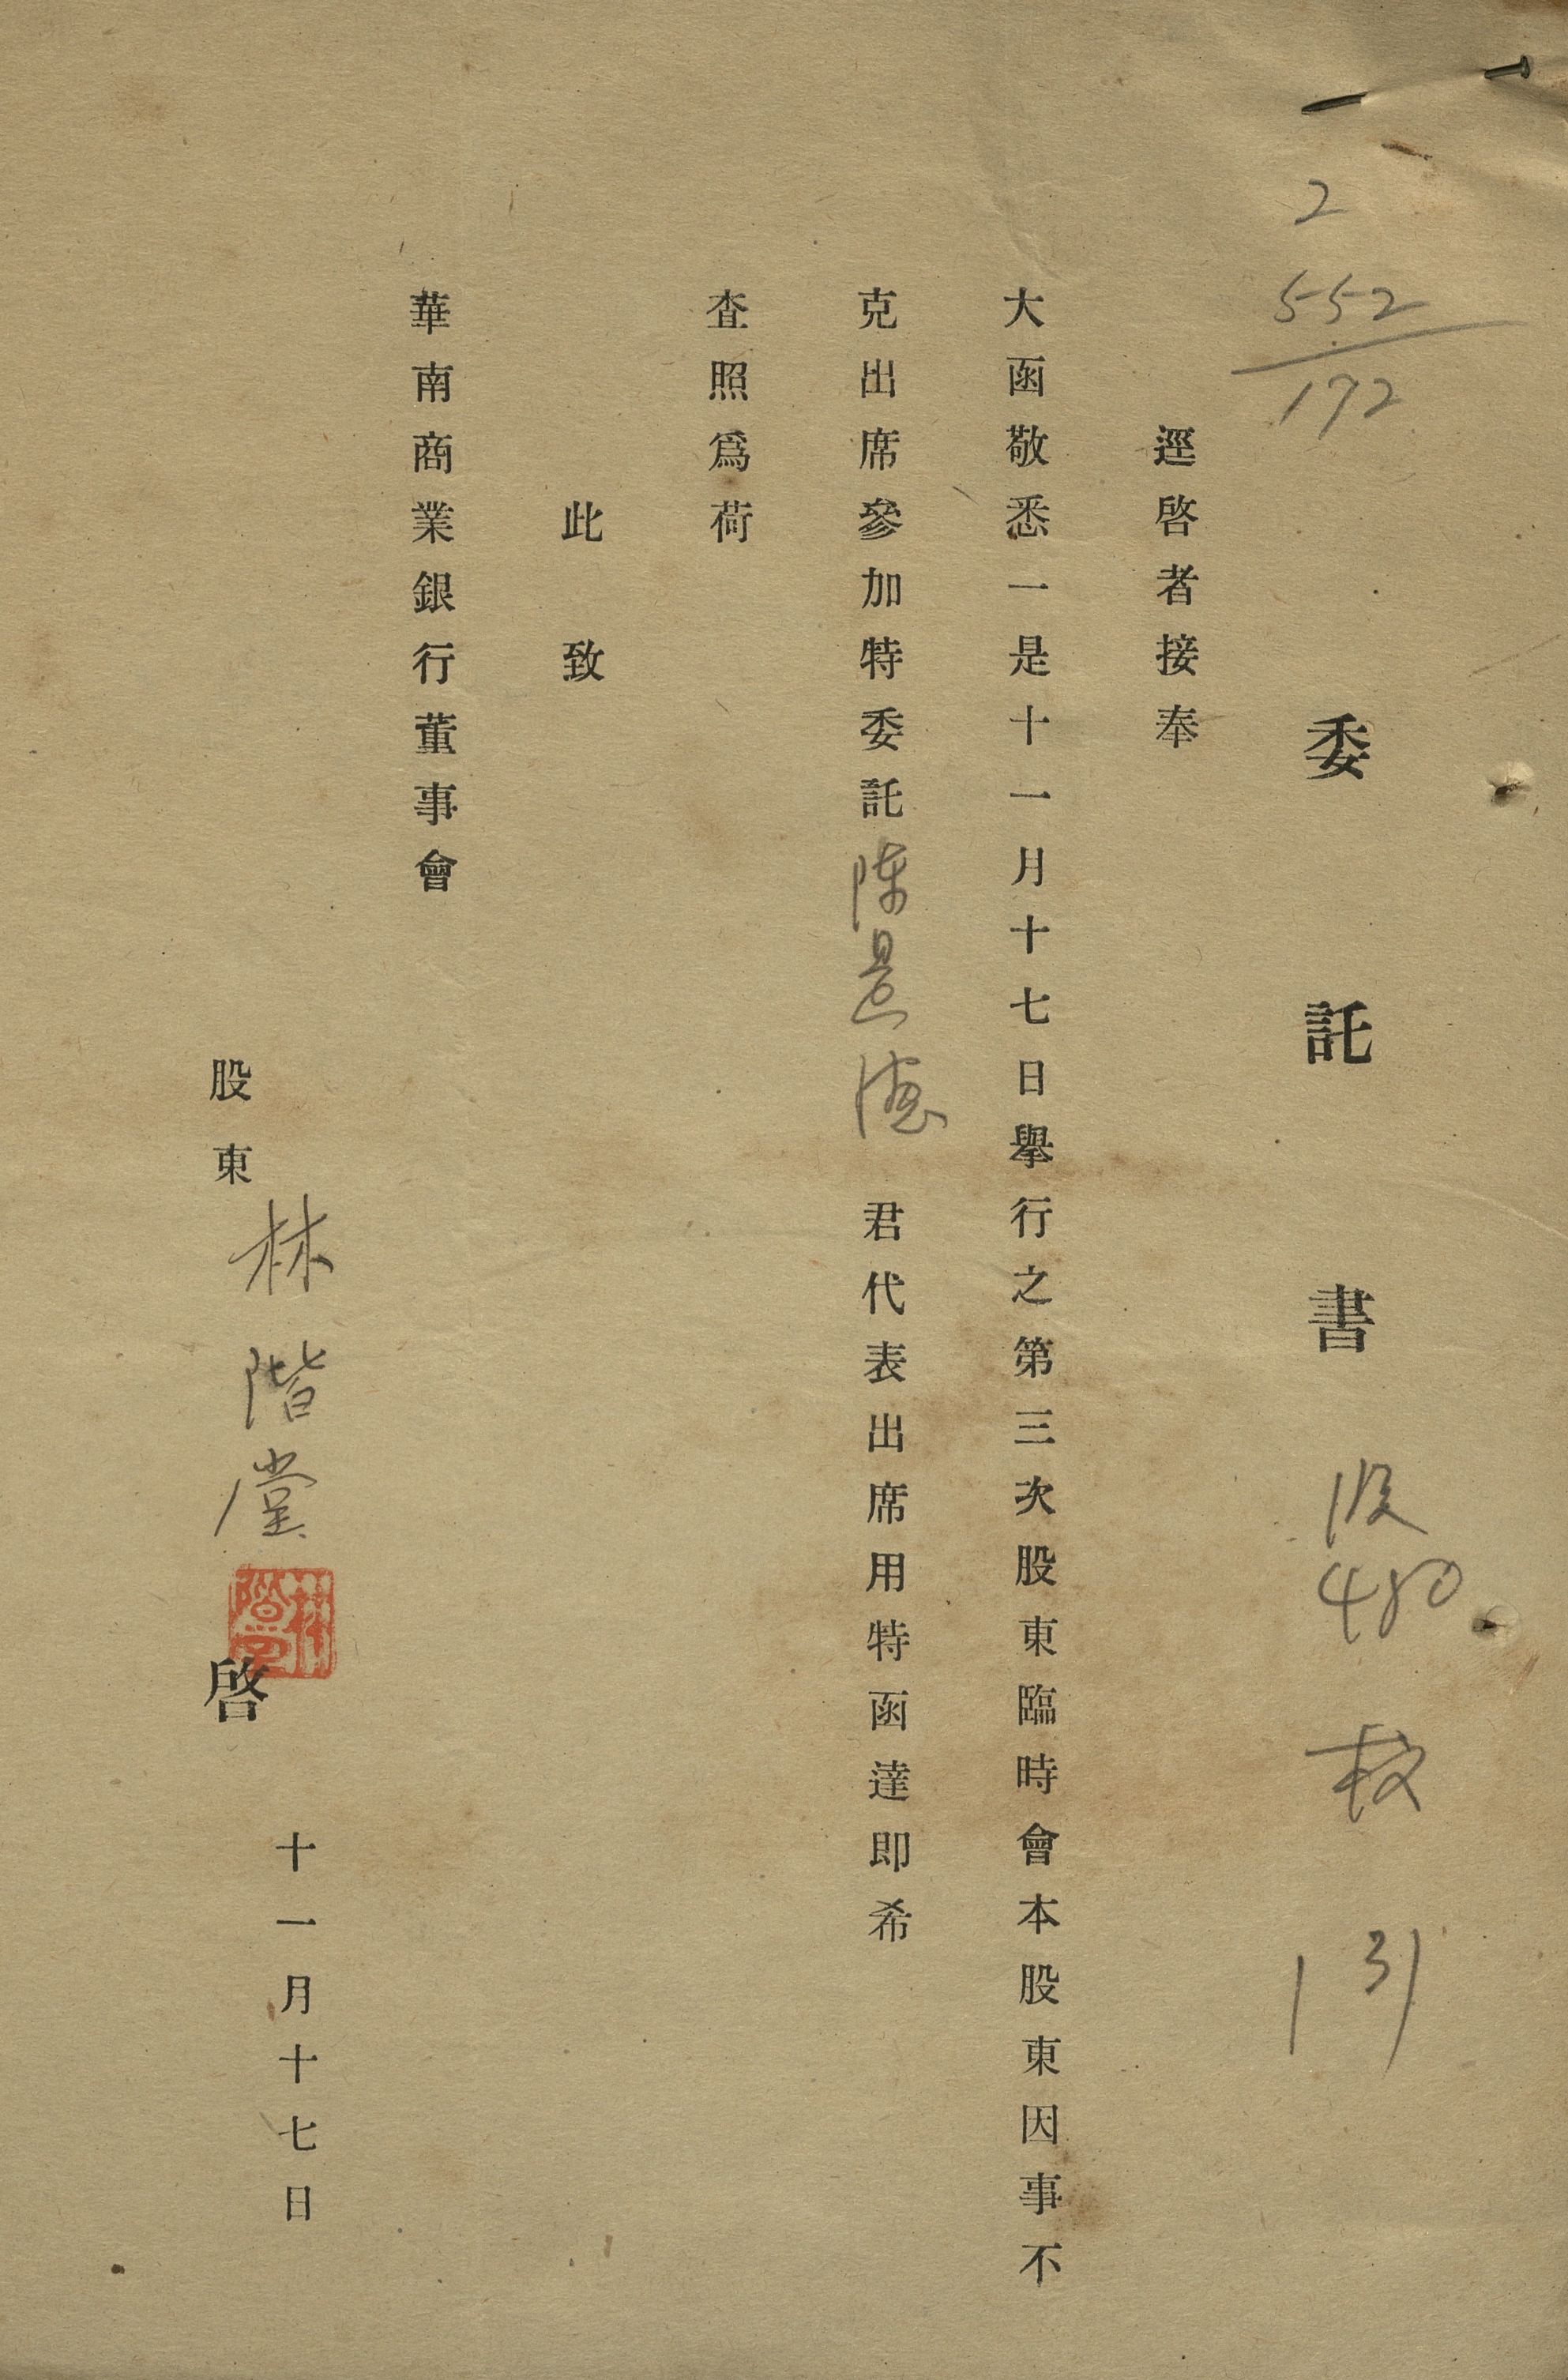 2
552
172
委託書
股
480
权
131
逕啓者接奉
大函敬悉一是十一月十七日舉行之第三次股東臨時會本股東因事不
克出席參加特委託陳 德君代表出席用特函達即希
查照爲荷
此致
華南商業銀行董事會
股東林階堂啓
林階堂
十一月十七日